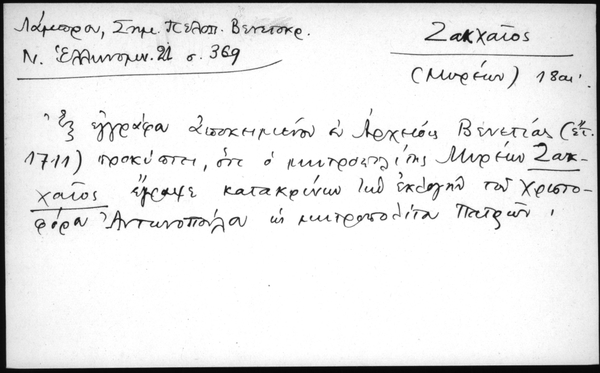 Λάμπρου, Σημ. Πελοπ. Βενετοκρ.
Ν. Ἑλληνομν. 21 σ. 369
Ζακχαῖος
(Μυρέων) 18 αι.
Ἐξ ἐγγράφου ἀποκειμένου ἐν Ἀρχείοις Βενετίας (ἔτ.
1711) προκύπτει, ὅτι ὁ μητροπολίτης Μυρέων Ζακ-
χαῖος ἔγραψε κατακρίνων τὴν ἐκλογὴν τοῦ Χριστο-
φόρου Ἀντωνοπούλου ὡς μητροπολίτου Πατρῶν.